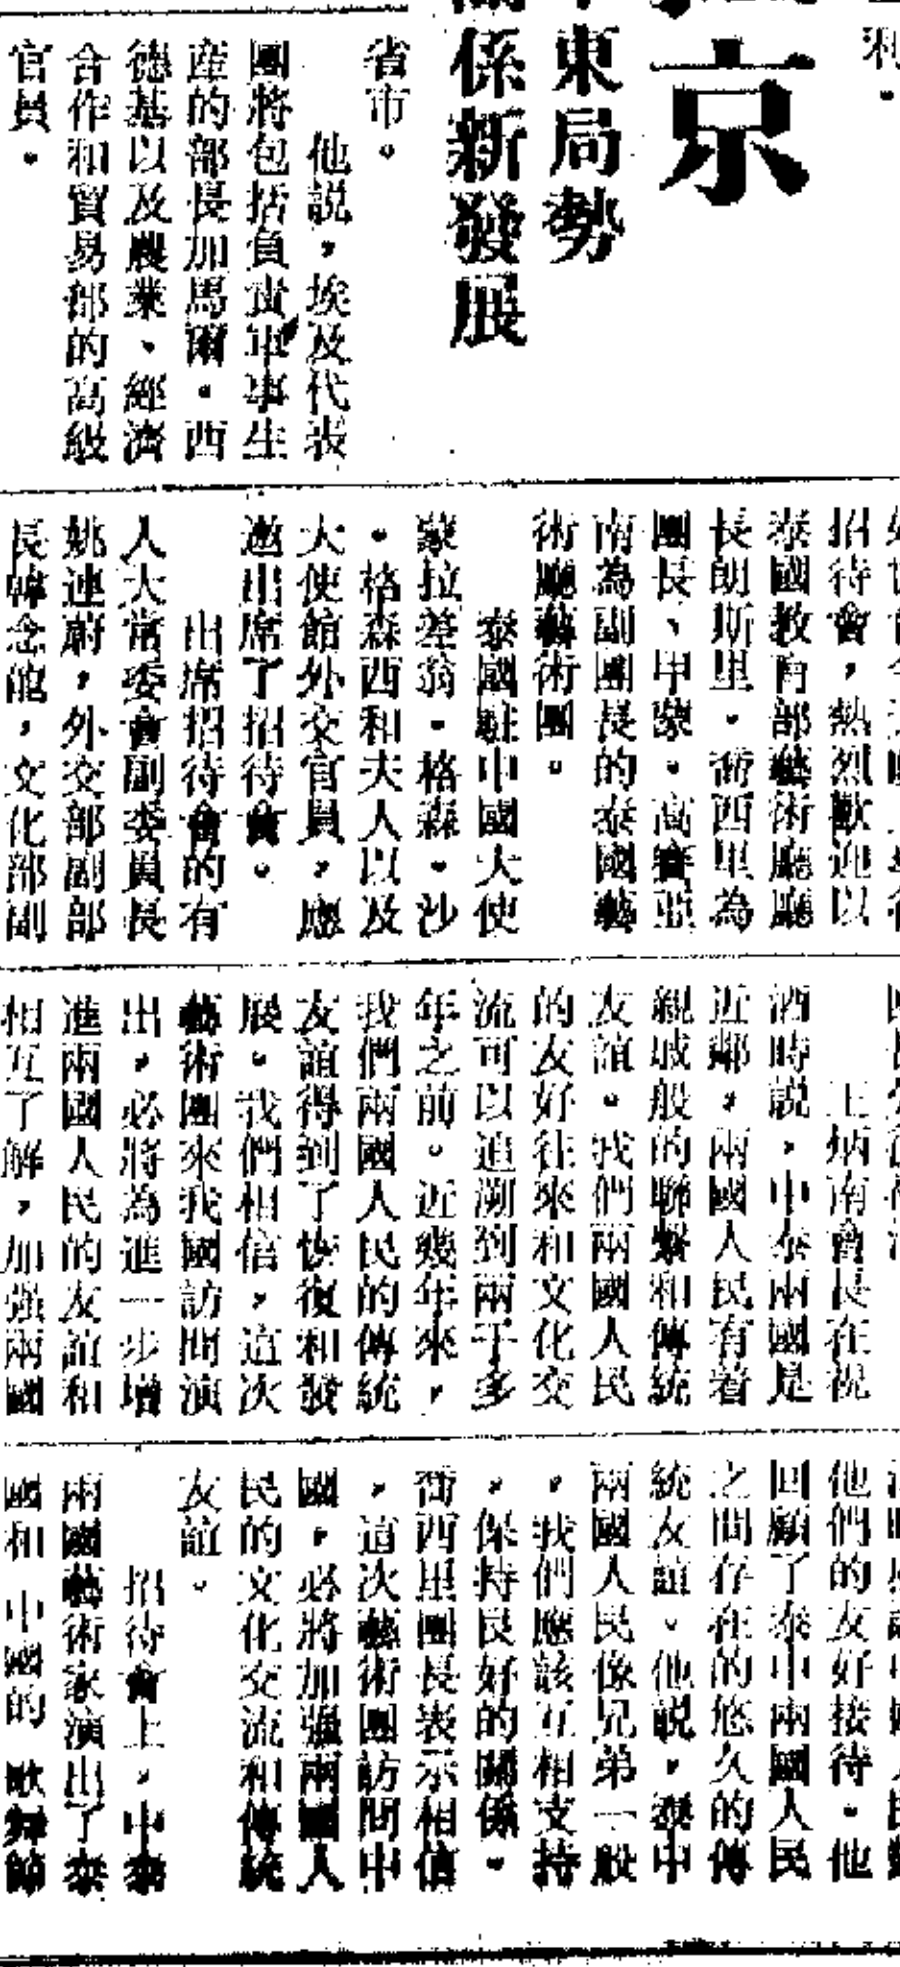 利。
京
東局勢
係新發展
省市。
他説，埃及代表
團將包括負責軍事生
産的部長加馬爾·西
德基以及農業、經濟
合作和貿易部的高級
官員。
招待會，熱烈歡迎以
泰國教育部藝術廳廳
長朗斯里·西里為
團長、甲蒙·高亞
南為副團長的泰國藝
術廳藝術團。
泰國駐中國大使
蒙拉差翁·格森·沙
·格森西和夫人以及
大使館外交官員，應
邀出席了招待會。
出席招待會的有
人大常委會副委員長
姚連蔚，外交部副部
長韓念龍，文化部副
王炳南會長在祝
酒時説，中泰兩國是
近鄰，兩國人民有着
親戚般的聯繫和傳統
友誼。我們兩國人民
的友好往來和文化交
流可以追溯到兩千多
年之前。近幾年來，
我們兩國人民的傳統
友誼得到了恢復和發
展。我們相信，這次
藝術團來我國訪問演
出，必將為進一步增
進兩國人民的友誼和
相互了解，加强兩國
他們的友好接待。他
回顧了泰中兩國人民
之間存在的悠久的傳
統友誼。他説，泰中
兩國人民像兄弟一般
，我們應該互相支持
，保持良好的關係。
西里團長表示相信
，這次藝術團訪問中
國，必將加強兩國人
民的文化交流和傳統
友誼。
招待會上，中泰
兩國藝術家演出了泰
國和中國的歌舞節